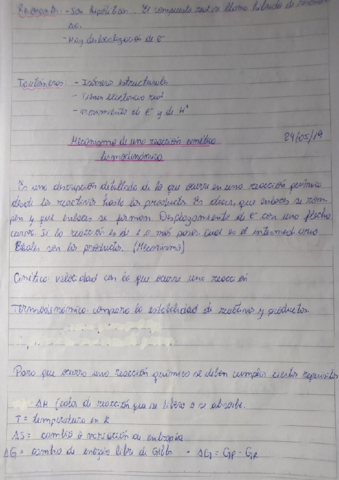 Resonancia: - Son hipotéticas. El compuesto real se llama híbrido de resonan
cia.
- Hay deslocalización de e⁻
Tautómeros: - Isómeros estructurales
- Tienen existencia real
- movimiento de e⁻ y de H⁺
Mecanismo de una reacción cinético 29/05/19
termodinámico
Es una descripción detallada de lo que ocurre en una reacción química
desde los reactivos hasta los productos. Es decir, que enlaces se rom
pen y que enlaces se forman. Desplazamiento de e⁻ con una flecha
curva. Si la reacción es de 2 o mas pasos. Cual es el intermediario
Cuales son los productos. (Mecanismo)
Cinética velocidad con la que ocurre una reacción
Termodinámica compara la estabilidad de reactivos y productos
Para que ocurra una reacción química se deben cumplir ciertos requisitos
ΔH (calor de reacción que se libera o se absorbe.
T = temperatura en K
ΔS = cambio o variación en entropía
ΔG = cambio de energía libre de Gibbs - ΔG = Gp - GR